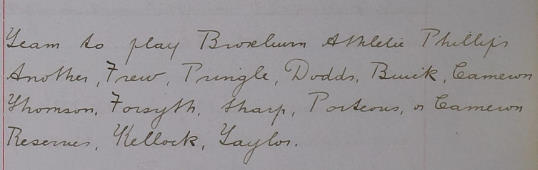 Team to play Broxburn Athletic Phillips
Another, Frew, Pringle, Dodds, Buick, Cameron
Thomson, Forsyth, Sharp, Porteous, or Cameron
Reserves, Kellock, Taylor.